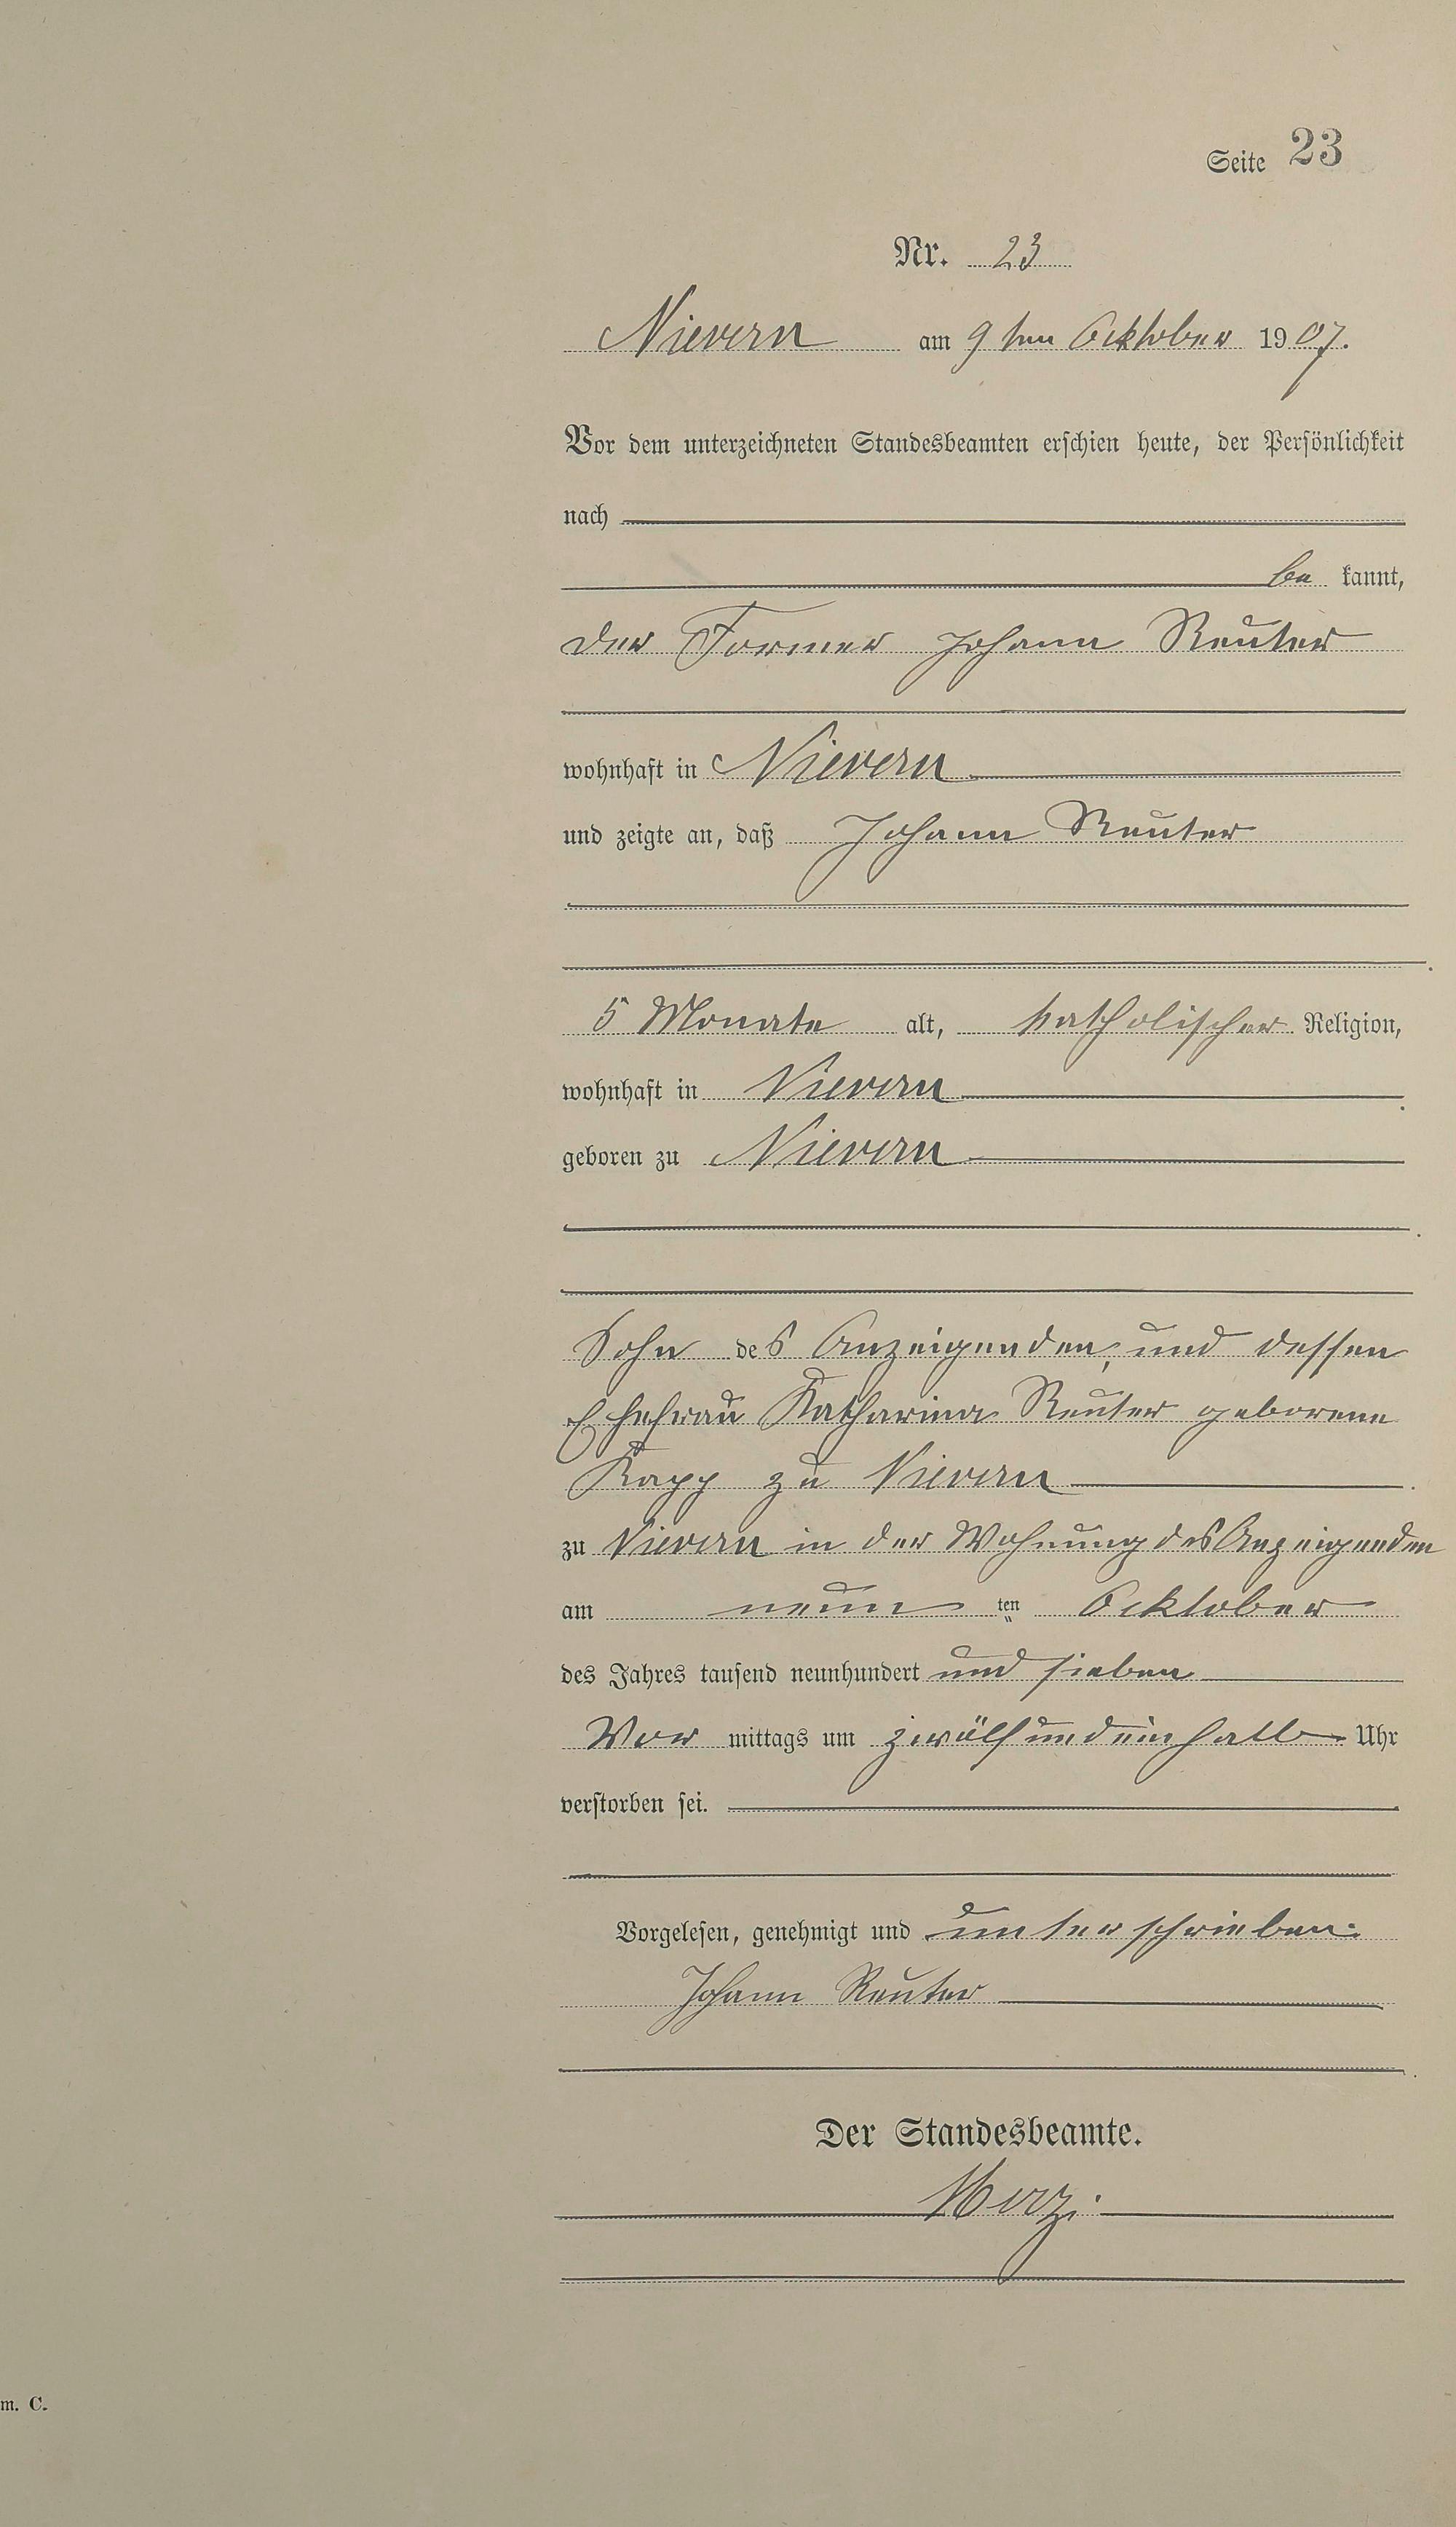 Seite 23
Nr. 23
Nievern am 9ten Ocktober 1907.
Vor dem unterzeichneten Standesbeamten erschien heute, der Persönlichkeit
nach
be kannt,
der Former Johann Reuter
wohnhaft in Nievern
und zeigte an, daß Johann Reuter
5 Monate alt, katholischer Religion,
wohnhaft in Nievern
geboren zu Nievern
Sohn des Anzeigenden, und dessen
Ehefrau Katharina Reuter geborene
Kapp zu Nievern
zu Nievern in der Wohnung des Anzeigenden
am neun ten Ocktober
des Jahres tausend neunhundert und sieben
Vor mittags um zwölfundeinhalb Uhr
verstorben sei.
Vorgelesen, genehmigt und unterschrieben:
Johann Reuter
Der Standesbeamte.
m. C.